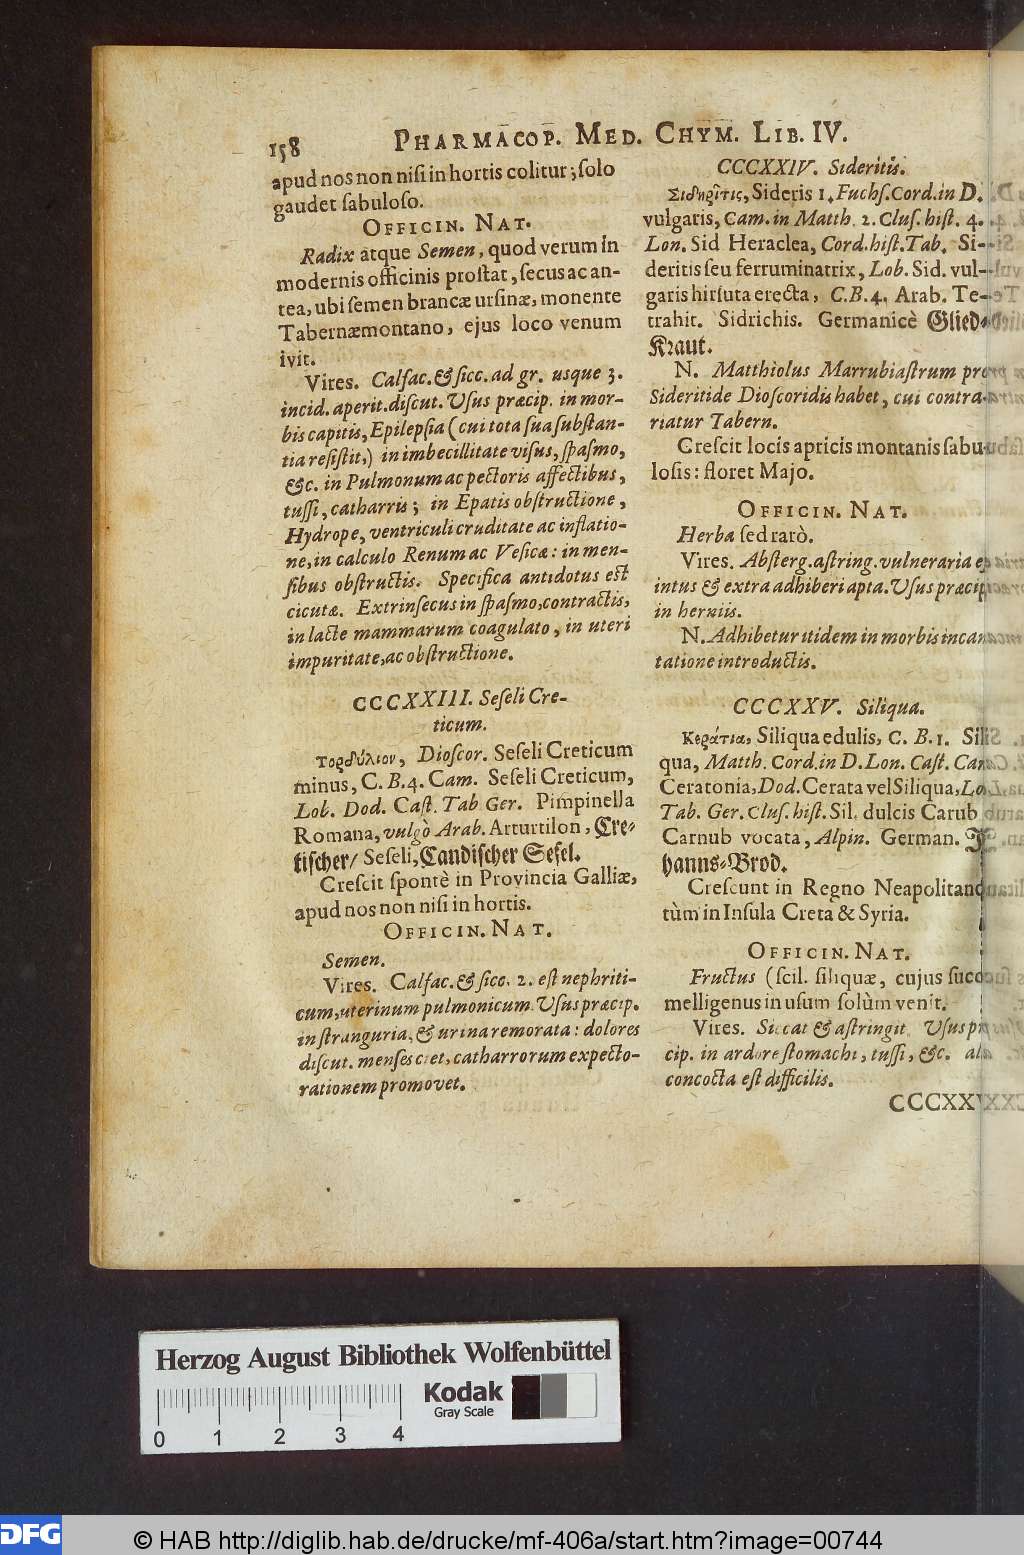 158 PHARMACOP. MED. CHYM. LIB. IV.
apud nos non nisi in hortis colitur; solo
gaudet sabuloso.
OFFICIN. NAT.
Radix atque Semen, quod verum in
modernis officinis prostat, secus ac an-
tea, ubi semen brancæ ursinæ, monente
Tabernæmontano, ejus loco venum
ivit.
Vires. Calfac. & sicc. ad gr. usque 3.
incid. aperit. discut. Usus præcip. in mor-
bis capitis, Epilepsia (cui tota sua substan-
tia resistit,) in imbecillitate visus, spasmo,
&c. in Pulmonum ac pectoris affectibus,
tussi, catharris; in Epatis obstructione,
Hydrope, ventriculi cruditate ac inflatio-
ne, in calculo Renum ac Vesicæ: in men-
sibus obstructis. Specifica antidotus est
cicutæ. Extrinsecus in spasmo, contractis,
in lacte mammarum coagulato, in uteri
impuritate, ac obstructione.
CCCXXIII. Seseli Cre-
ticum.
Τορδύλιον, Dioscor. Seseli Creticum
minus, C. B. 4. Cam. Seseli Creticum,
Lob. Dod. Cast. Tab Ger. Pimpinella
Romana, vulgò Arab. Arturtilon, Cre-
tischer/ Seseli, Candischer Sesel.
Crescit spontè in Provincia Galliæ,
apud nos non nisi in hortis.
OFFICIN. NAT.
Semen.
Vires. Calfac. & sicc. 2. est nephriti-
cum, uterinum pulmonicum. Usus præcip.
in stranguria, & urina remorata: dolores
discut. menses ciet, catharrorum expecto-
rationem promovet.
CCCXXIV. Sideritis.
Σιδηρῖτις, Sideris 1. Fuchs. Cord. in D.
vulgaris, Cam. in Matth. 2. Clus. hist. 4.
Lon. Sid Heraclea, Cord. hist. Tab. Si-
deritis seu ferruminatrix, Lob. Sid. vul-
garis hirsuta erecta, C. B. 4. Arab. Te-
trahit. Sidrichis. Germanicè Glied-
Kraut.
N. Matthiolus Marrubiastrum pro
Sideritide Dioscoridis habet, cui contra-
riatur Tabern.
Crescit locis apricis montanis sabu-
losis: floret Majo.
OFFICIN. NAT.
Herba sed rarò.
Vires. Absterg. astring. vulneraria
intus & extra adhiberi apta. Usus præcip
in herniis.
N. Adhibetur itidem in morbis incan-
tatione introductis.
CCCXXV. Siliqua.
Κεράτια, Siliqua edulis, C. B. 1. Sili
qua, Matth. Cord. in D. Lon. Cast. Cam
Ceratonia, Dod. Cerata vel Siliqua, Lob.
Tab. Ger. Clus. hist. Sil. dulcis Carub
Carnub vocata, Alpin. German. Jo
hanns-Brod.
Crescunt in Regno Neapolitano
tùm in Insula Creta & Syria.
OFFICIN. NAT.
Fructus (scil. siliquæ, cujus succo
melligenus in usum solùm venit.
Vires. Siccat & astringit. Usus
cip. in ardore stomachi, tussi, &c.
concocta est difficilis.
Herzog August Bibliothek Wolfenbüttel
Kodak
Gray Scale
0 1 2 3 4
DFG
© HAB http://diglib.hab.de/drucke/mf-406a/start.htm?image=00744